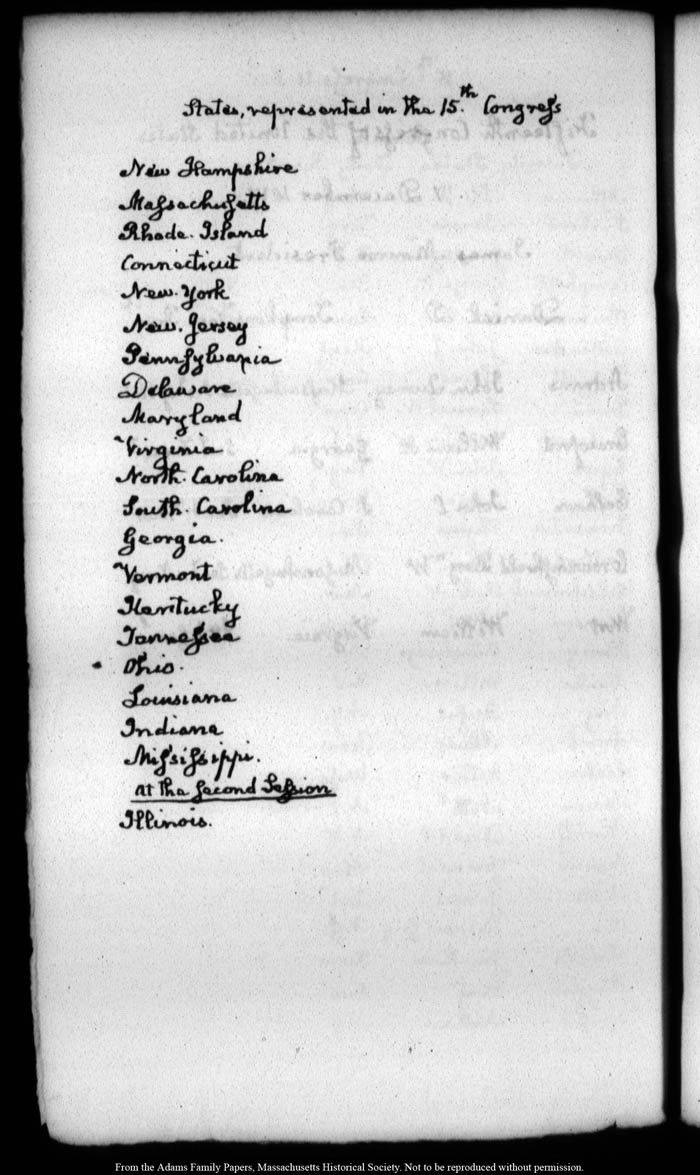 States, represented in the 15.th Congress
New Hampshire
Massachusetts
Rhode. Island
Connecticut
New. York
New. Jersey
Pennsylvania
Delaware
Maryland
Virginia
North. Carolina
South. Carolina
Georgia.
Vermont
Kentucky
Tennessee
Ohio.
Louisiana
Indiana
Mississippi.
At the Second Session
Illinois.
From the Adams Family Papers, Massachusetts Historical Society. Not to be reproduced without permission.